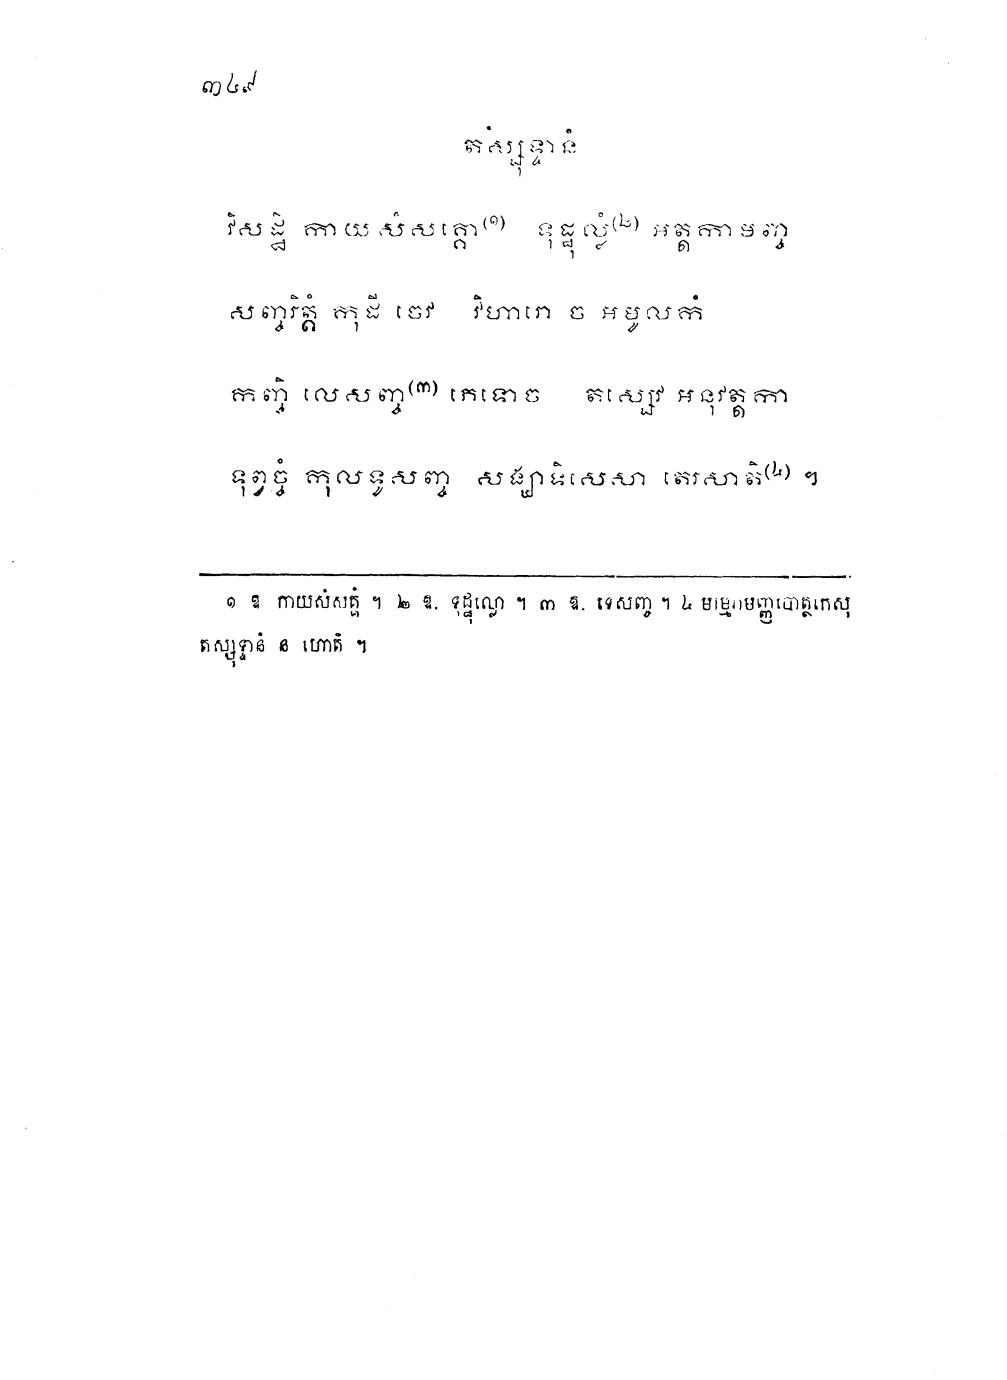 ៣៤៩
តស្សុទ្ទានំ
វិសដ្ឋិ កាយសំសគ្គោ(១) ទុដ្ឋុល្លំ(២) អត្តកាមញ្ច
សញ្ចរិត្តំ កុដី ចេវ វិហារោ ច អមូលកំ
កញ្ចិ លេសញ្ច(៣) ភេទោច តស្សេវ អនុវត្តកា
ទុព្វច្ចំ កុលទូសញ្ច សង្ឃាទិសេសា តេរសាតិ(៤) ។
១ ឱ កាយសំសគ្គំ ។ ២ ឱ. ទុដ្ឋុល្លោ ។ ៣ ឱ. ទេសញ្ច ។ ៤ មរម្មរាមញ្ញបោត្ថកេសុ
តស្សុទ្ទានំ ន ហោតិ ។